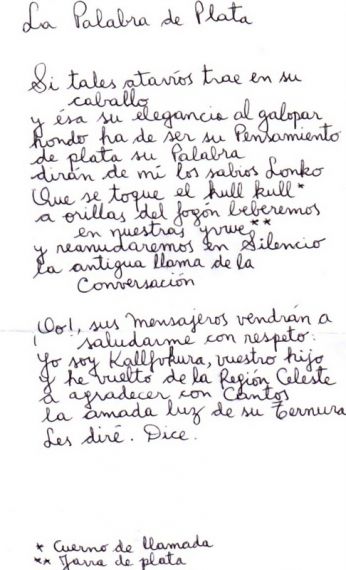 La Palabra de Plata
Si tales atavíos trae en su
caballo
y ésa su elegancia al galopar
hondo ha de ser su Pensamiento
de plata su Palabra
dirán de mí los sabios Lonko
Que se toque el kull kull*
a orillas del fogón beberemos
en nuestras yvwe**
y reanudaremos en Silencio
la antigua llama de la
Conversación
Oo!, sus mensajeros vendrán a
saludarme con respeto.
Yo soy Kallfvkura, vuestro hijo
y he vuelto de la Región Celeste
a agradecer con Cantos
la amada luz de su Ternura
Les diré. Dice.
* Cuerno de llamada
** Jarra de plata